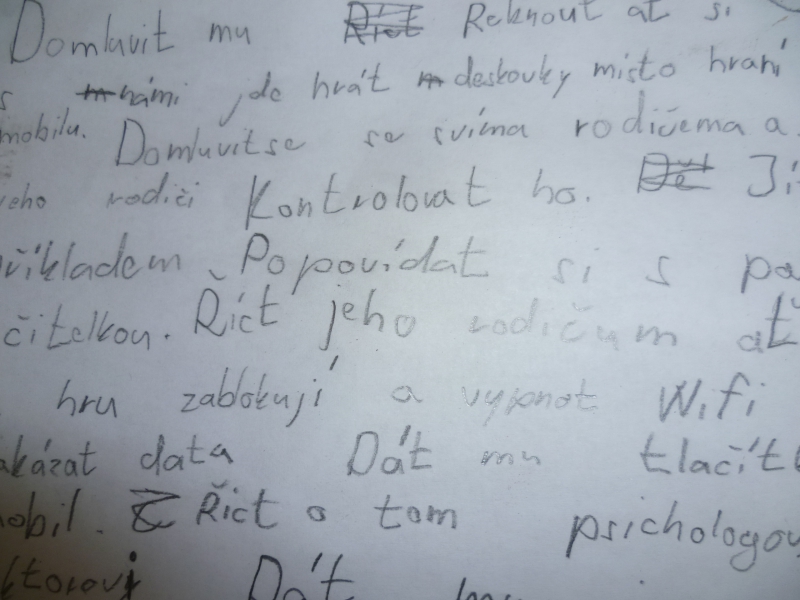 Domluvit mu Řeknout ať si
s námi jde hrát deskovky místo hraní
mobilu. Domluvit se se svíma rodičema a
rodiči Kontrolovat ho. Jí
příkladem Popovídat si s pa
čitelkou. Říct jeho rodičum ať
hru zablokují a vypnot Wifi
akázat data Dát mu tlačít
obil. Říct o tom psichologov
ktorovi Dát